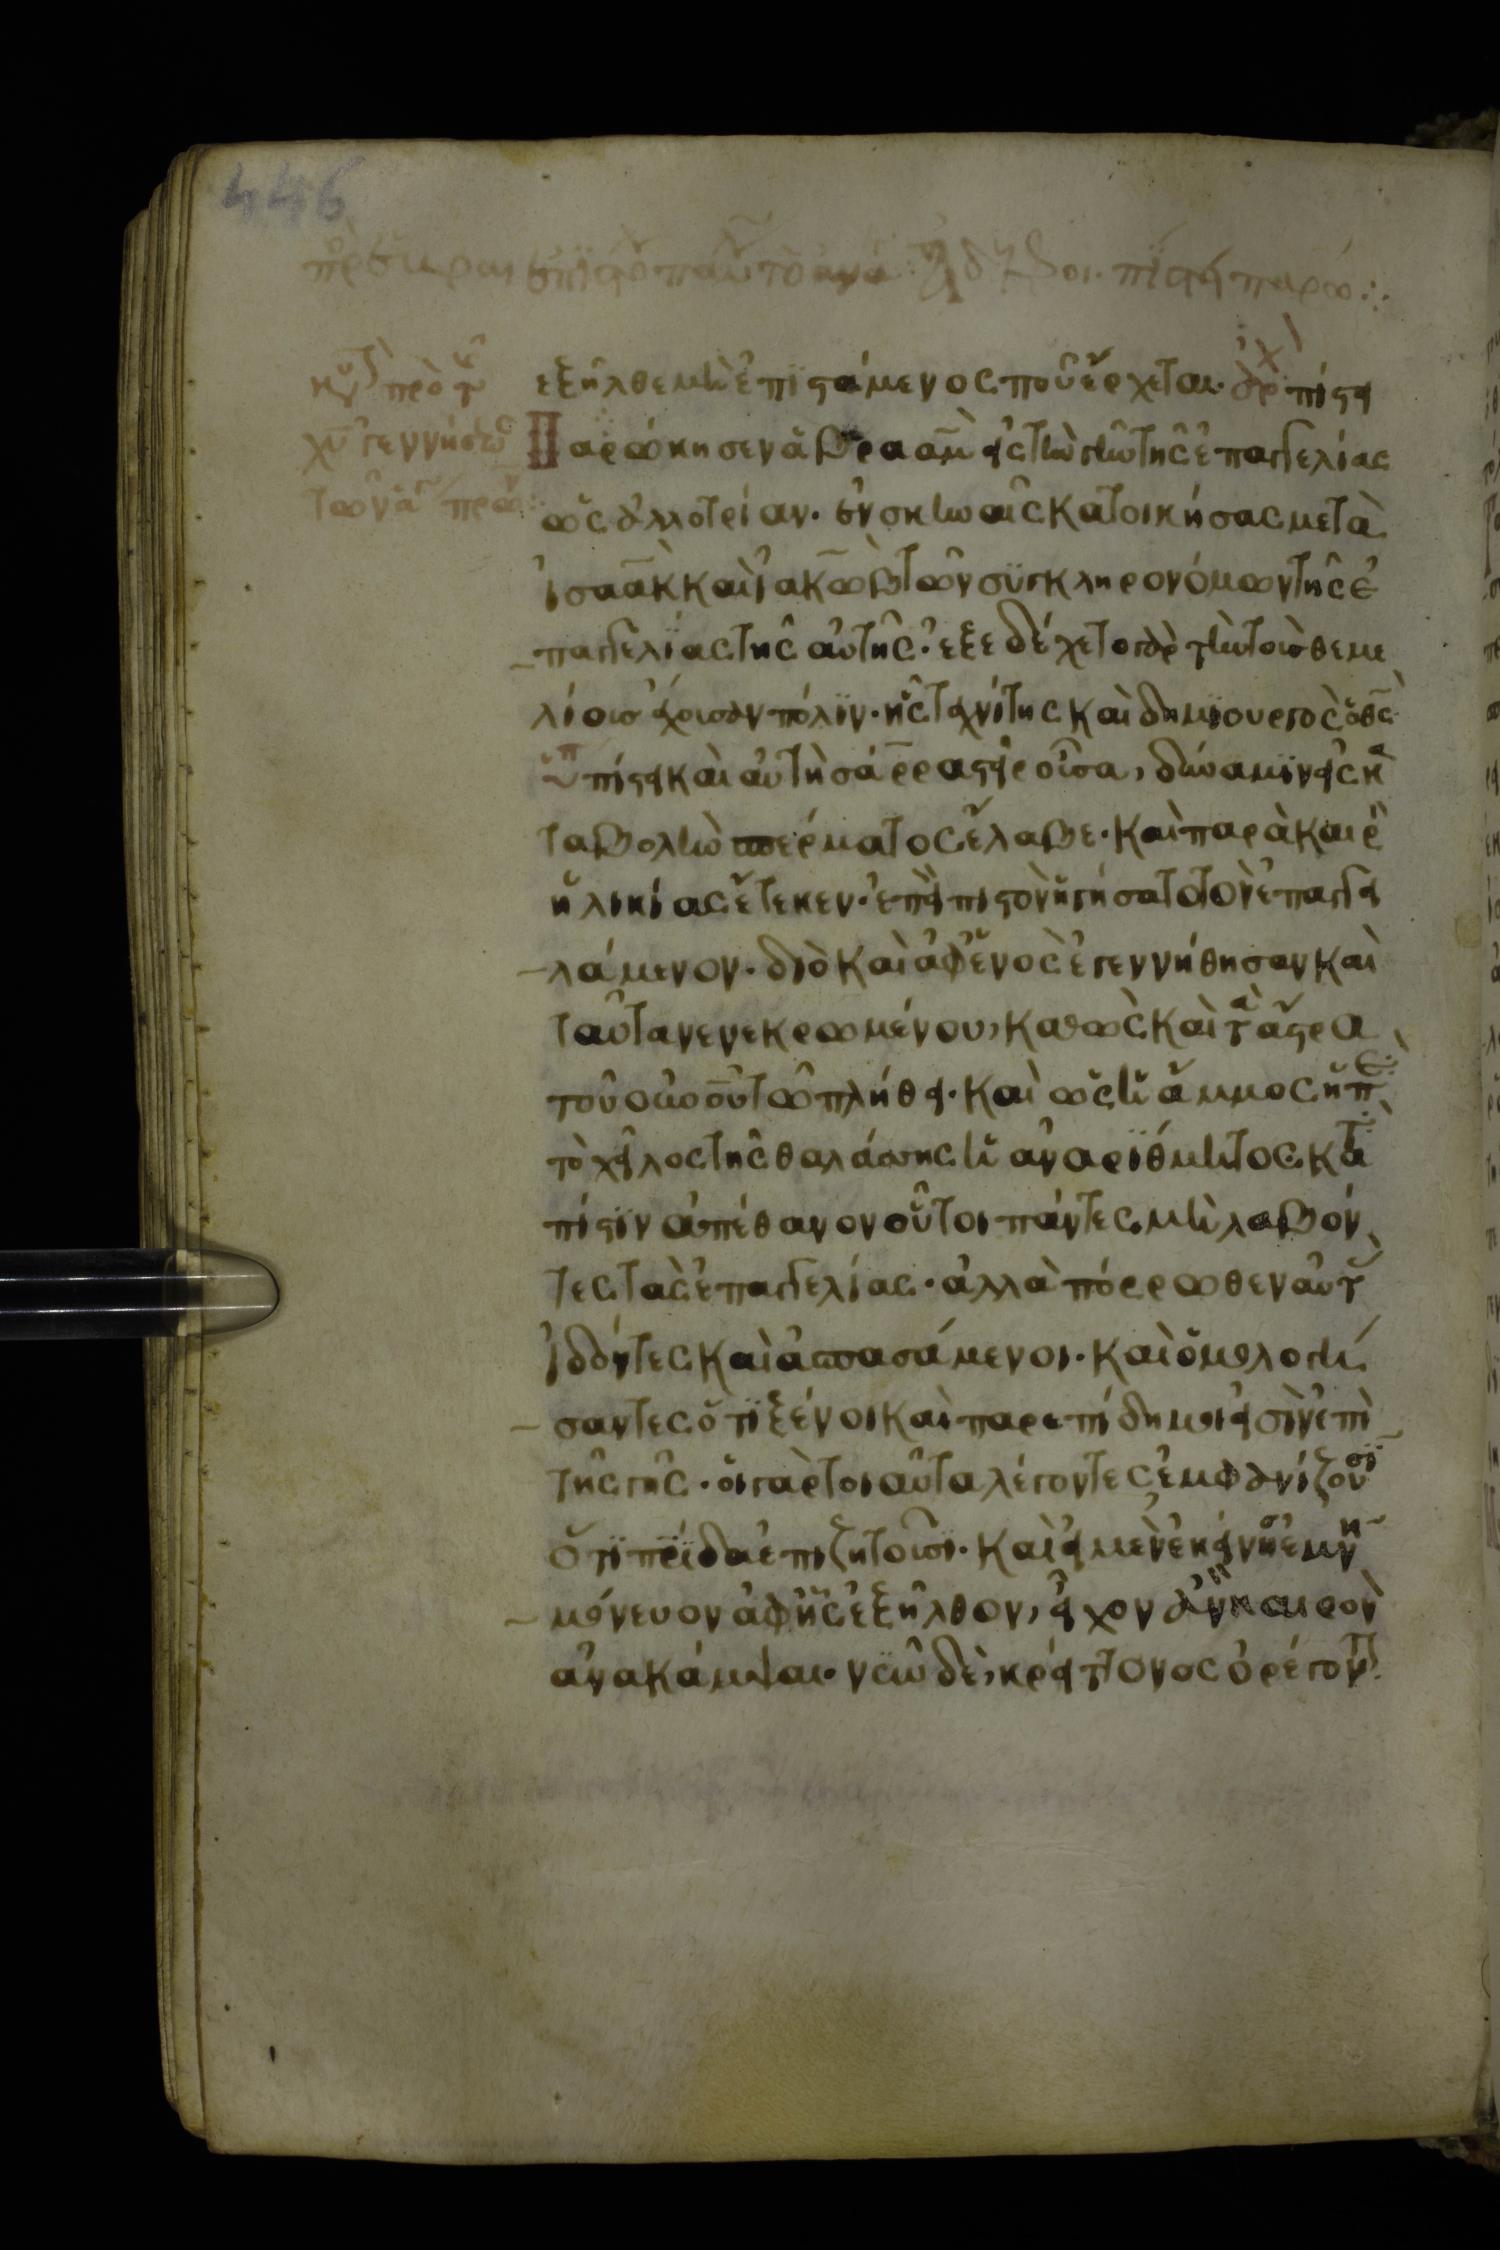 446
ἐξῆλθε μὴ ἐπϊστάμενος ποῦ ἔρχεται· ἀρχ πίστει
Παρώκησεν ἀβρααμ εἰς τὴν γῆν τῆς ἐπαγγελίας
ὡς ἀλλοτρίαν· ἐν σκηναῖς κατοικήσας μετὰ
ἰσαὰκ καὶ ἰακὼβ τῶν συγκληρονόμων τῆς ἐ
παγγελίας τῆς αὐτῆς· ἐξεδέχετο γὰρ τὴν τοὺς θεμε
λίους ἔχουσαν πόλϊν· ἧς τεχνίτης καὶ δημϊουργὸς ὁ θς
πίστει καὶ αὐτὴ σάρρα στεῖρ οὖσα, δύναμϊν εἰς κα
ταβολὴν σπέρματος ἔλαβε· καὶ παρὰ καιρὸ
ἡλικίας ἔτεκεν· ἐπεὶ πιστὸν ἡγήσατο τὸν ἐπαγγει
λάμενον· διὸ καὶ ἀφ ἑνὸς ἐγεννήθησαν καὶ
ταῦτα νενεκρωμένου, καθὼς καὶ τὰ ἄστρα
τοῦ οὐνοῦ τῶ πλήθει· καὶ ὡς ἡ ἄμμος ἡ π
τὸ χεῖλος τῆς θαλάσσης ἡ ἀναρίθμητος· κατ
πίστϊν ἀπέθανον οὗτοι πάντες, μὴ λαβόν
τες τὰς ἐπαγγελίας· ἀλλὰ πόρρωθεν αὐτ
ἰδόντες καὶ ἀσπασάμενοι· καὶ ὁμολογή
σαντες ὅτϊ ξένοι καὶ παρεπίδημοι εἰσὶν ἐπὶ
τῆς γῆς· οἱ γὰρ τοιαῦτα λέγοντες ἐμφανίζουσϊ
ὅτϊ πρίδα ἐπιζητοῦσι· καὶ εἰ μὲν ἐκείνης ἐμνη
μόνευον ἀφ ἧς ἐξῆλθον, εἶχον ἂν καιρὸν
ἀνακάμψαι· νῦν δὲ, κρείττονος ὀρέγοντ
κυ πρὸ τ
χυ γεννήσεως
τῶν ἁ πρω